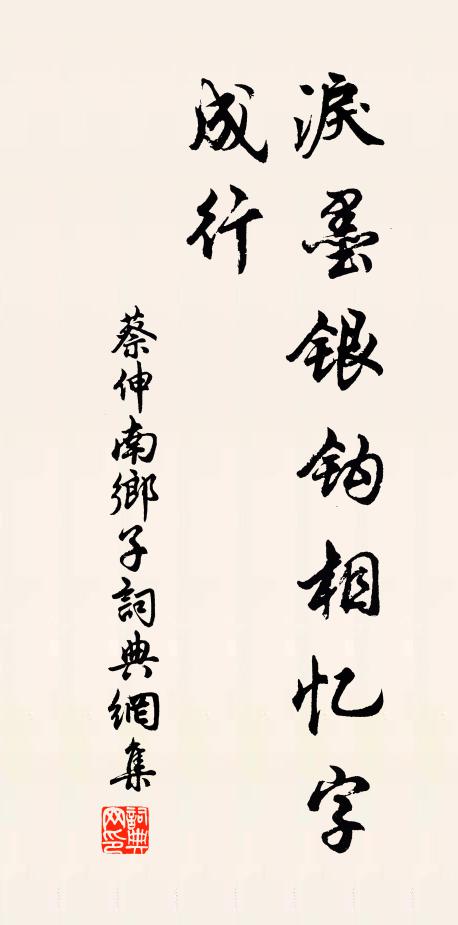 淚墨銀鈎相忆字
成行
蔡伸南鄉子詞典網集
詞典网印